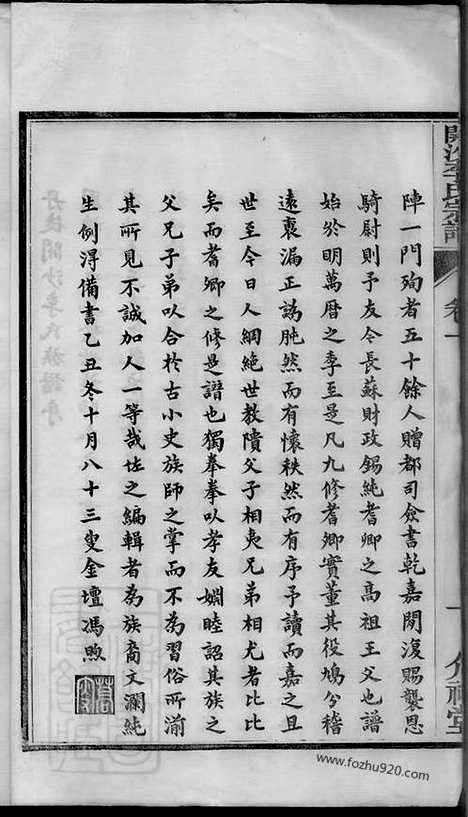 陣一門殉者五十餘人贈都司僉書乾嘉閒復賜襲恩
騎尉則予友今長蘇財政錫純耆卿之高祖王父也譜
始於明萬曆之季至是凡九修耆卿實董其役鳩分稽
遠裒漏正譌肫然而有懷秩然而有序予讀而嘉之且
世至今日人綱絕世教隤父子相夷兄弟相尤者比比
矣而耆卿之修是譜也獨拳拳以孝友婣睦詔其族之
父兄子弟以合於古小史族師之掌而不為習俗所湔
其所見不誠加人一等哉坿之編輯者為族裔文瀾純
生例得備書乙丑冬十月八十三叟金壇馮煦
蒿叟
開沙李氏宗譜
卷一
一
www.fozhu920.com